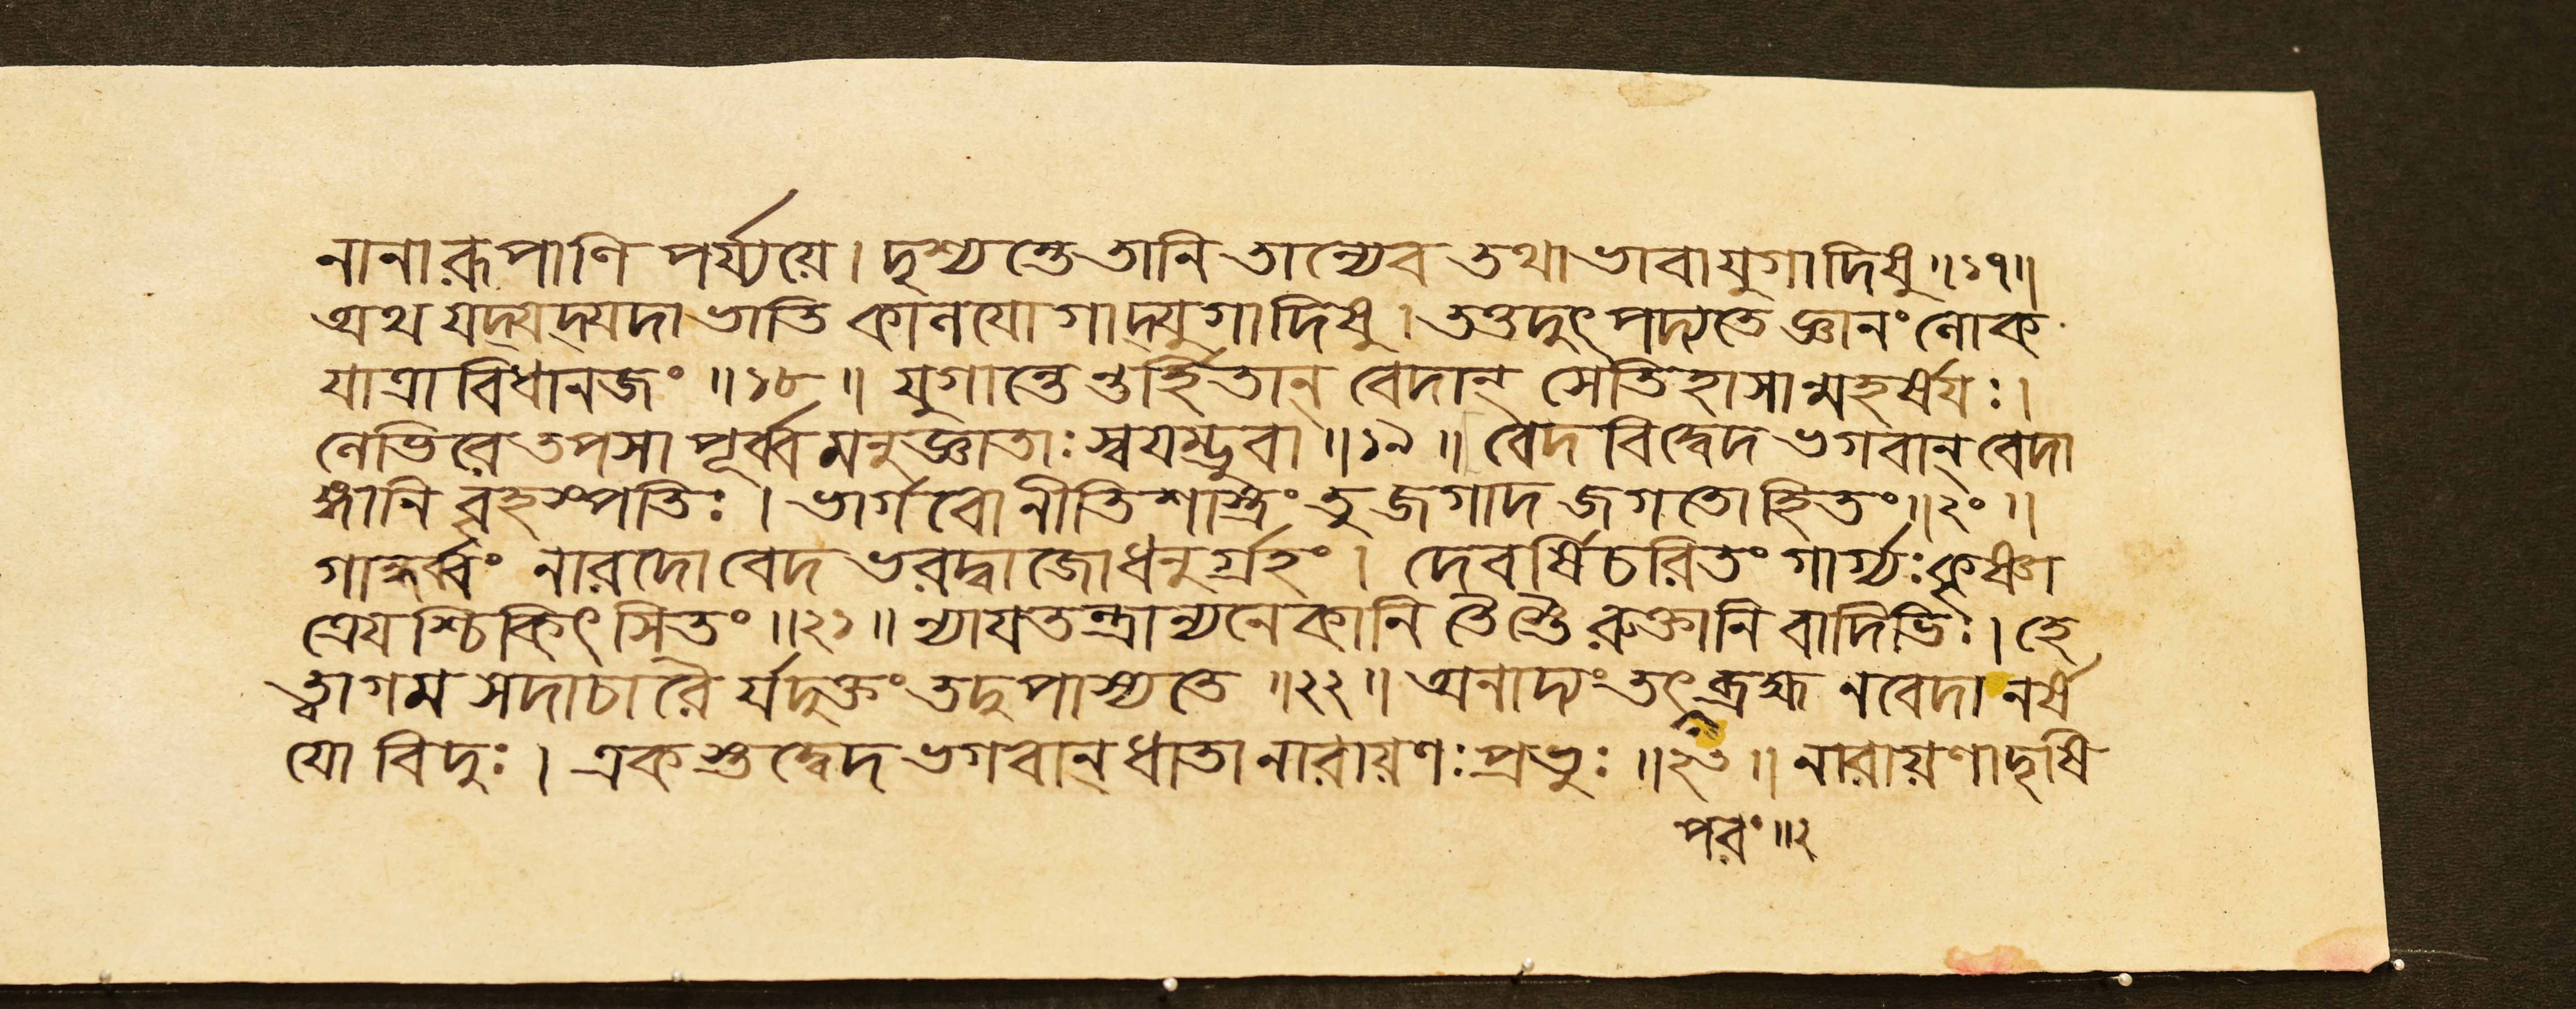 নানারূপাণি পর্য্যয়ে। দৃশ্যন্তে তানি তান্যেব তথা ভাবা যুগাদিষু॥১৭॥
অথ যদ্যদ্যদা ভাতি কালযোগাদ্যুগাদিষু। তত্তদুৎপদ্যতে জ্ঞানং লোক
যাত্রাবিধানজং ॥১৮॥ যুগান্তেন্তর্হিতান্ বেদান্ সেতিহাসান্মহর্ষয়ঃ।
লেভিরে তপসা পূর্ব্বমনুজ্ঞাতাঃ স্বযম্ভুবা॥১৯॥ বেদবিদ্বেদ ভগবান্ বেদা
ঙ্গানি বৃহস্পতিঃ। ভার্গবো নীতিশাস্ত্রং তু জগাদ জগতো হিতং॥২০॥
গান্ধর্ব্বং নারদো বেদ ভরদ্বাজো ধনুর্গ্রহং। দেবর্ষিচরিতং গার্গ্যঃ কৃষ্ণা
ত্রেযশ্চিকিৎসিতং॥২১॥ ন্যাযতন্ত্রান্যনেকানি তৈস্তৈরুক্তানি বাদিভিঃ। হে
ত্বাগমসদাচারৈর্যদুক্তং তদুপাস্যতে॥২২॥ অনাদ্যং তৎ ব্রহ্ম ন বেদা নর্ষ
যো বিদুঃ। একস্তদ্বেদ ভগবান্ ধাতা নারায়ণঃ প্রভুঃ॥২৩॥ নারায়ণাদৃষি
পরং॥২